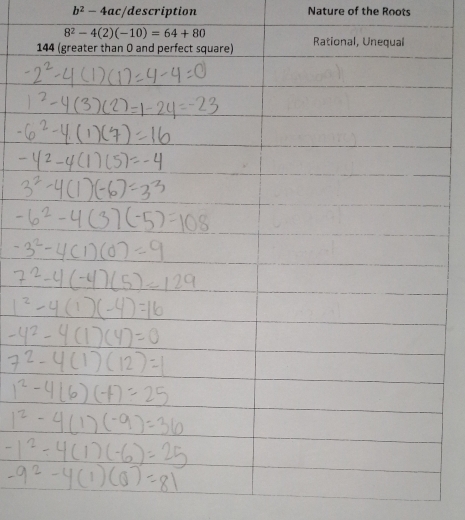 b² – 4ac/description Nature of the Roots
8² – 4(2)(−10) = 64 + 80
144 (greater than 0 and perfect square) Rational, Unequal
-2²-4(1)(1)=4-4=0
1²-4(3)(2)=1-24=-23
-6²-4(1)(7)=16
-42-4(1)(5)=-4
3²-4(1)(-6)=33
-6²-4(3)(-5)=108
-3²-4(1)(0)=9
7²-4(-4)(5)=129
1²-4(1)(-4)=16
-4²-4(1)(4)=0
7²-4(1)(12)=1
1²-4(6)(-1)=25
1²-4(1)(-9)=36
-1²-4(1)(-6)=25
-9²-4(1)(0)=81